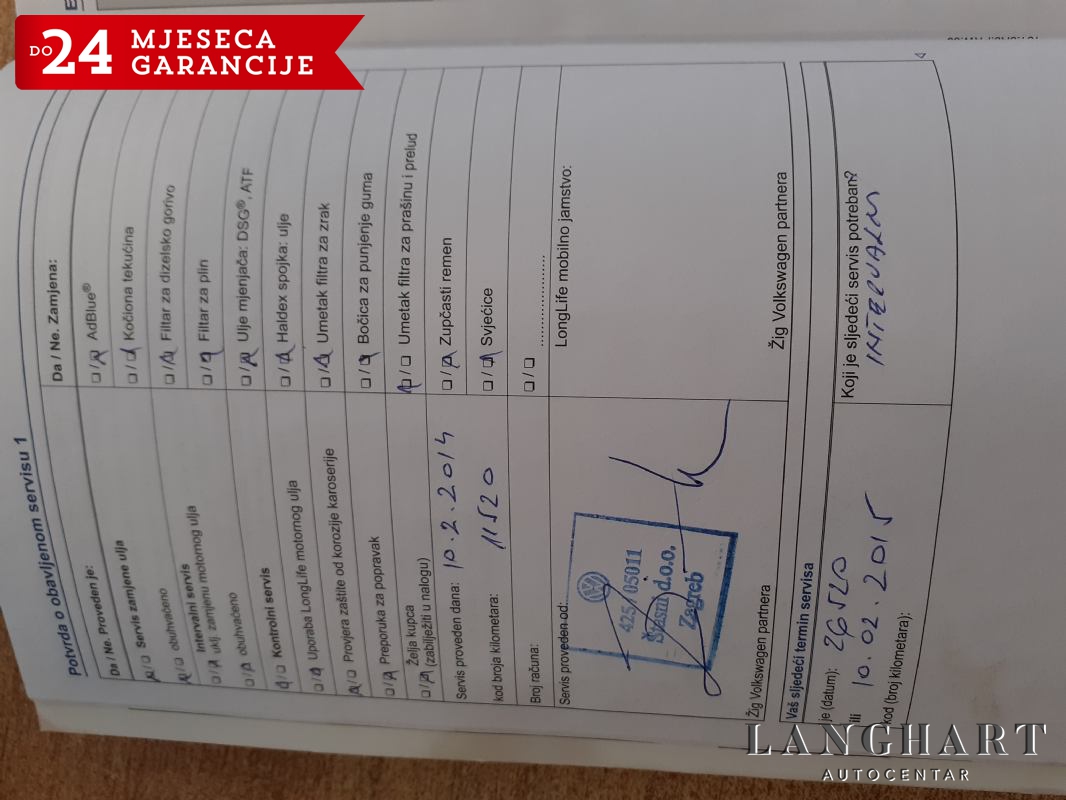 DO 24 MJESECA
GARANCIJE
Potvrda o obavljenom servisu 1
Da / Ne. Proveden je:
Servis zamjene ulja
obuhvaćeno
Intervalni servis
uklj. zamjenu motornog ulja
obuhvaćeno
Kontrolni servis
Uporaba LongLife motornog ulja
Provjera zaštite od korozije karoserije
Preporuka za popravak
Želja kupca
(zabilježiti u nalogu)
Servis proveden dana: 10.2.2014
kod broja kilometara: 11520
Broj računa:
Servis proveden od:
425/05011
d.o.o.
Zagreb
Žig Volkswagen partnera
Da / Ne. Zamjena:
AdBlue®
Kočiona tekućina
Filtar za dizelsko gorivo
Filtar za plin
Ulje mjenjača: DSG®, ATF
Haldex spojka: ulje
Umetak filtra za zrak
Bočica za punjenje guma
Umetak filtra za prašinu i prelud
Zupčasti remen
Svjećice
....................
LongLife mobilno jamstvo:
Žig Volkswagen partnera
Vaš sljedeći termin servisa
je (datum): 26520
ili 10.02.2015
kod (broj kilometara):
Koji je sljedeći servis potreban?
INTERVALNI
LANGHART
AUTOCENTAR